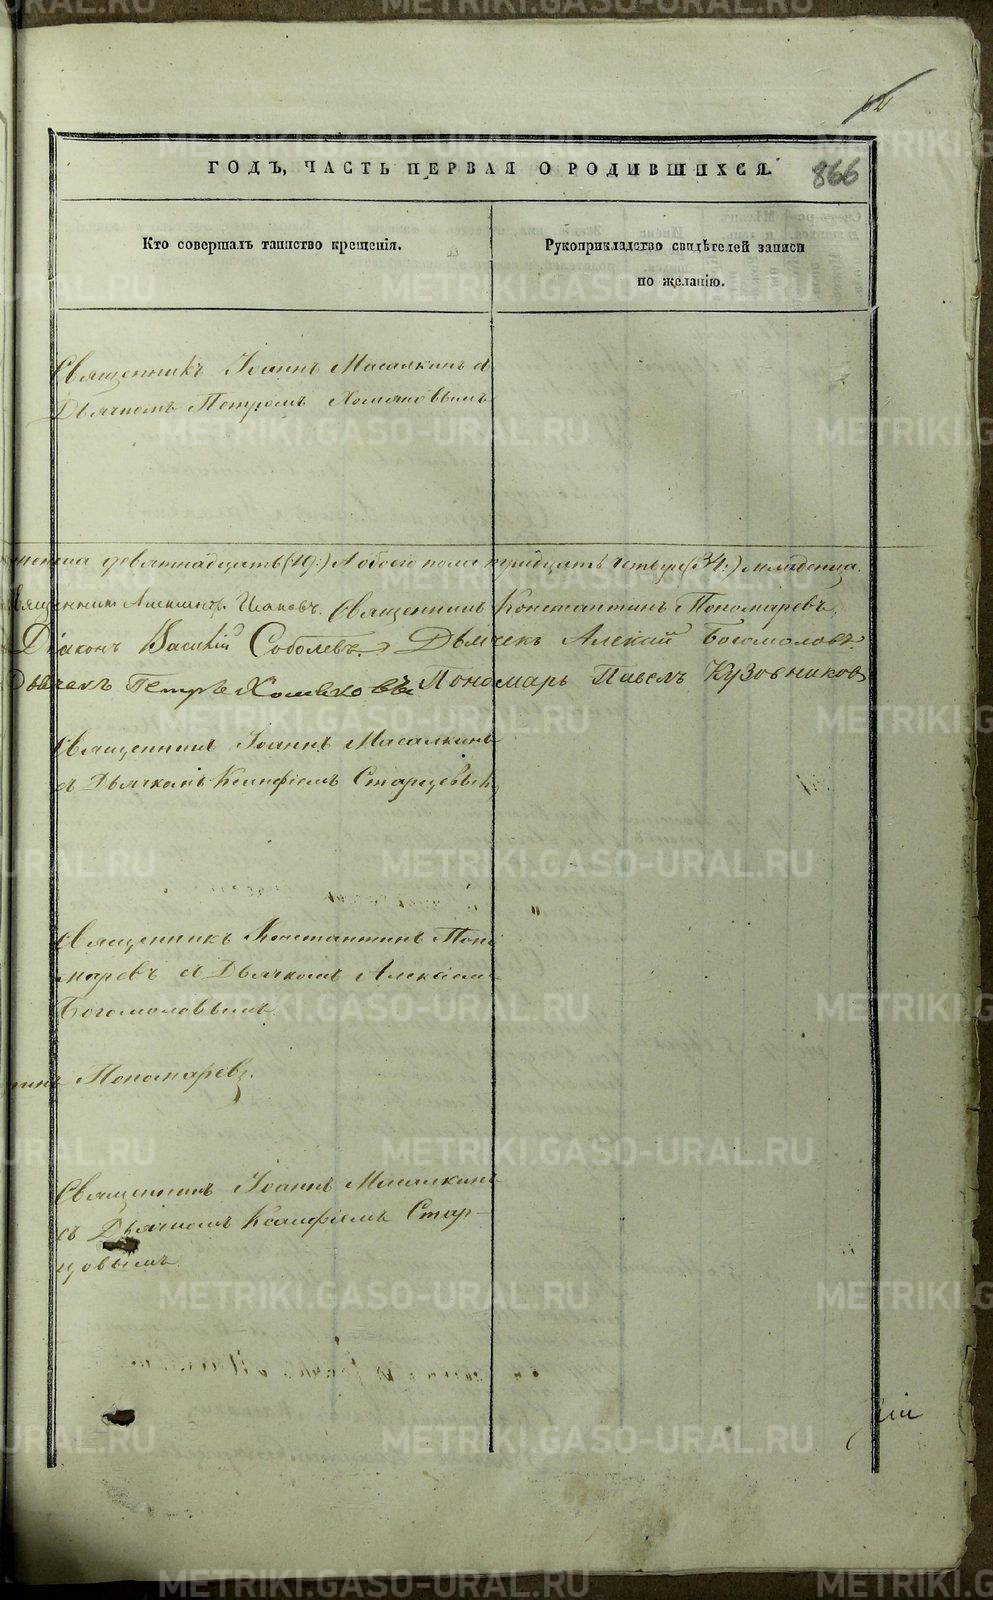 62
866
ГОДЪ, ЧАСТЬ ПЕРВАЯ О РОДИВШИХСЯ.
Кто совершалъ таинство крещенія.
Рукоприкладство свидѣтелей записи
по желанію.
Священникъ Іоаннъ Масалкинъ съ
Дьячкомъ Петромъ Хомяковымъ
девятнадцать (19:) А обоего пола тридцать четыре (34:) младенца.
Священникъ Александръ Священникъ Константинъ Пономаревъ.
Діаконъ Василій Соболевъ. Дьячекъ Алексій Богомоловъ.
Дьячекъ Петръ Хомяковъ Пономарь Павелъ Кузовниковъ
Священникъ Іоаннъ Масалкинъ
съ Дьячкомъ Ксанфіемъ Старцевымъ
Священникъ Константинъ Поно-
маревъ съ Дьячкомъ Алексіемъ
Богомоловымъ
Пономаревъ.
Священникъ Іоаннъ Масалкинъ
съ Дьячкомъ Ксанфіемъ Стар-
цовымъ
METRIKI.GASO-URAL.RU